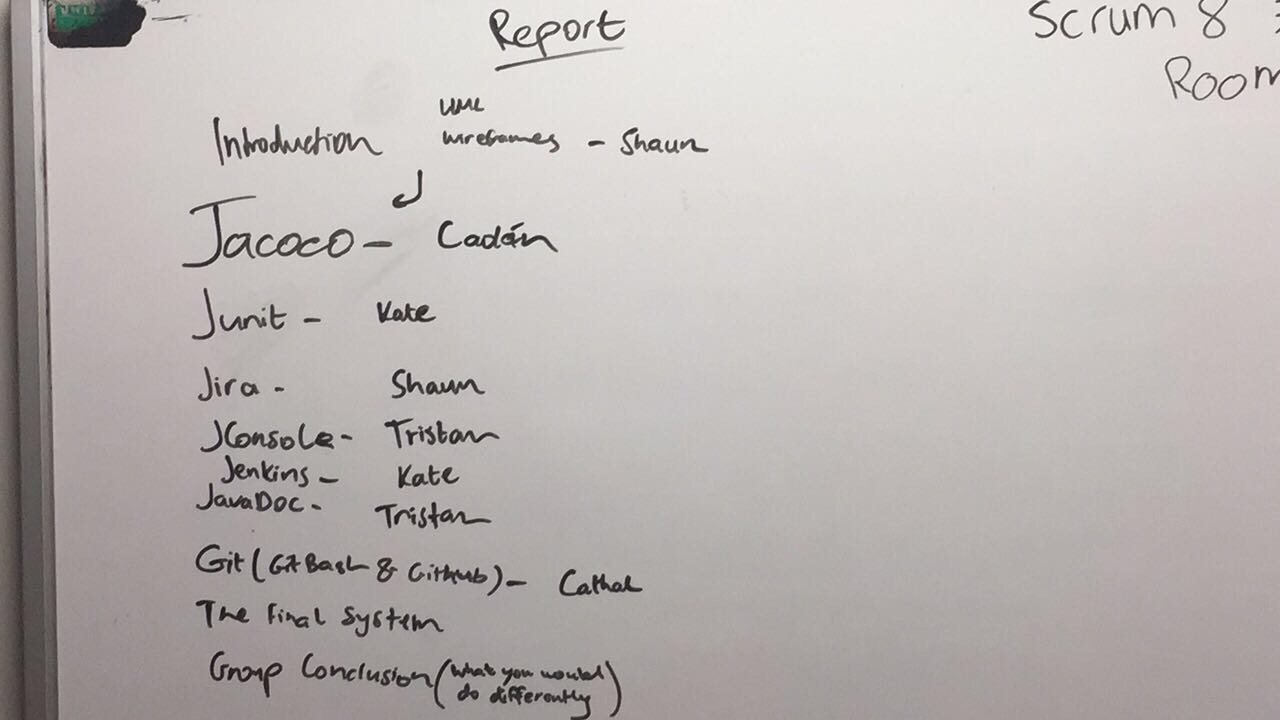 Report
Scrum 8
Room
UML
Introduction wireframes - Shaun
Jacoco - Cadán
Junit - Kate
Jira - Shaun
JConsole - Tristan
Jenkins - Kate
JavaDoc - Tristan
Git (Git Bash & GitHub) - Cathal
The Final System
Group Conclusion (what you would
do differently)